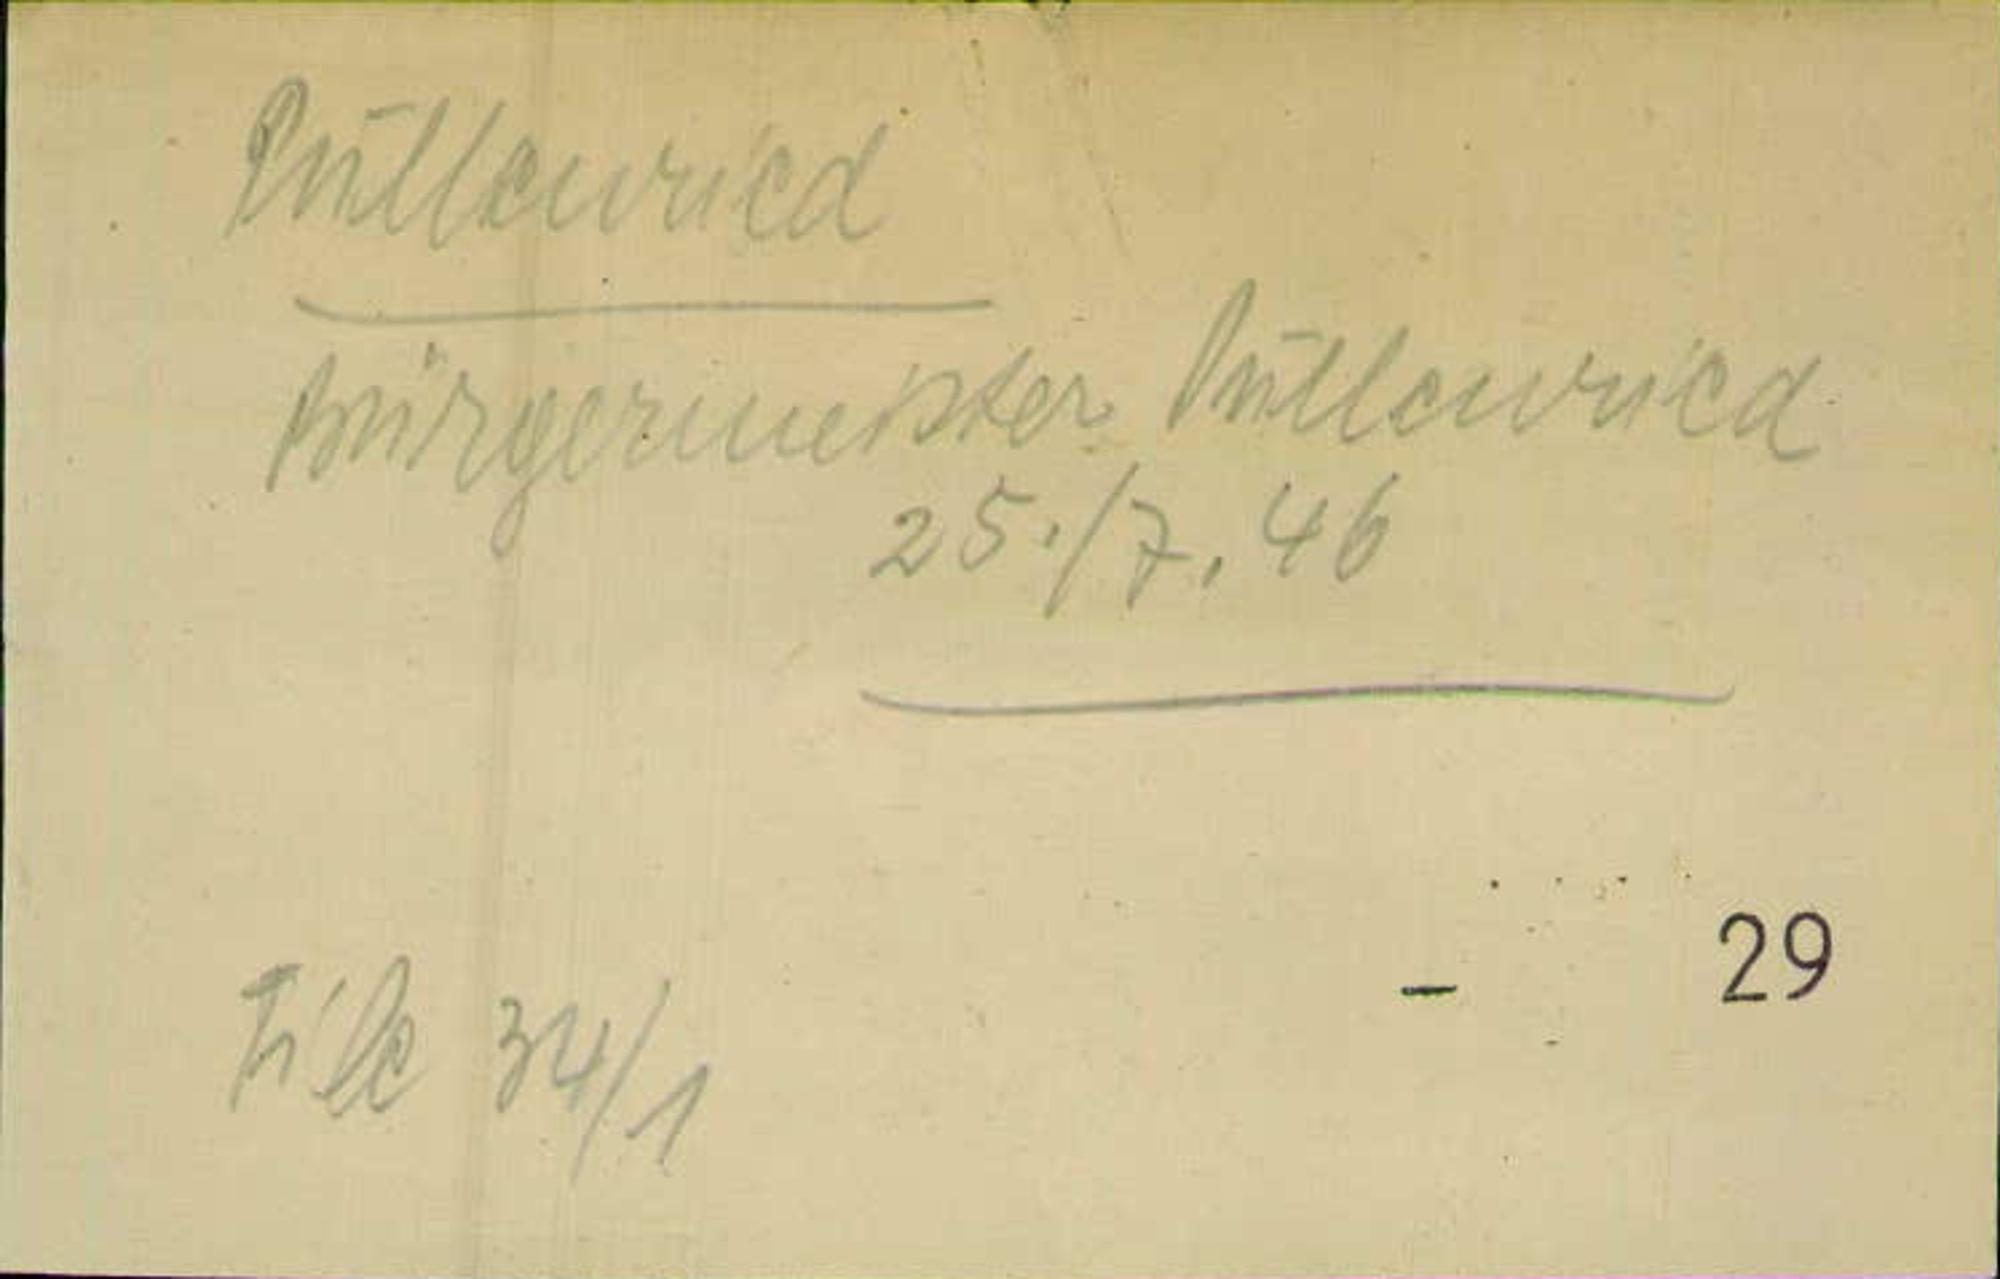 Püllenried
Bürgermeister Püllenried
25./7.46
29
File 34/1